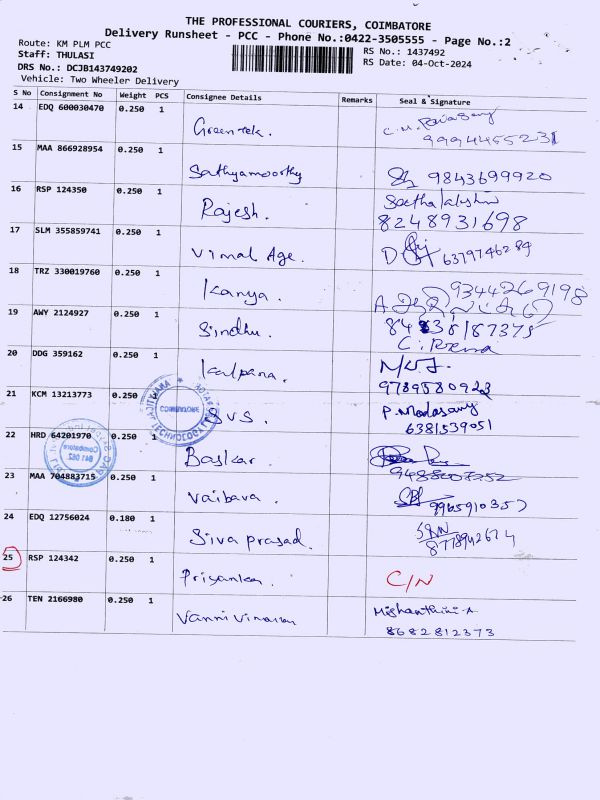 THE PROFESSIONAL COURIERS, COIMBATORE
Delivery Runsheet - PCC - Phone No.:0422-3505555 - Page No.:2
Route: KM PLM PCC
Staff: THULASI
DRS No.: DCJB143749202
Vehicle: Two Wheeler Delivery
RS No.: 1437492
RS Date: 04-Oct-2024
S No Consignment No Weight PCS Consignee Details Remarks Seal & Signature
14 EDQ 600030470 0.250 1 Greentek.
9994455231
15 MAA 866928954 0.250 1 Sathyamoorthy 9843699920
16 RSP 124350 0.250 1 Rajesh. Seethalakshmi
8248931698
17 SLM 355859741 0.250 1 Vimal Age. 6379746289
18 TRZ 330019760 0.250 1 Kanya. 9344269198
19 AWY 2124927 0.250 1 Sindhu.
20 DDG 359162 0.250 1 Kalpana.
9789580923
21 KCM 13213773 0.250 SVS. P. Madasamy
6381539051
22 HRD 64201970 0.250 1 Baskar.
23 MAA 704883715 0.250 1 Vaibava. 9965910357
24 EDQ 12756024 0.180 1 Siva prasad.
25 RSP 124342 0.250 1 Priyanka. C/N
26 TEN 2166980 0.250 1
8682812373